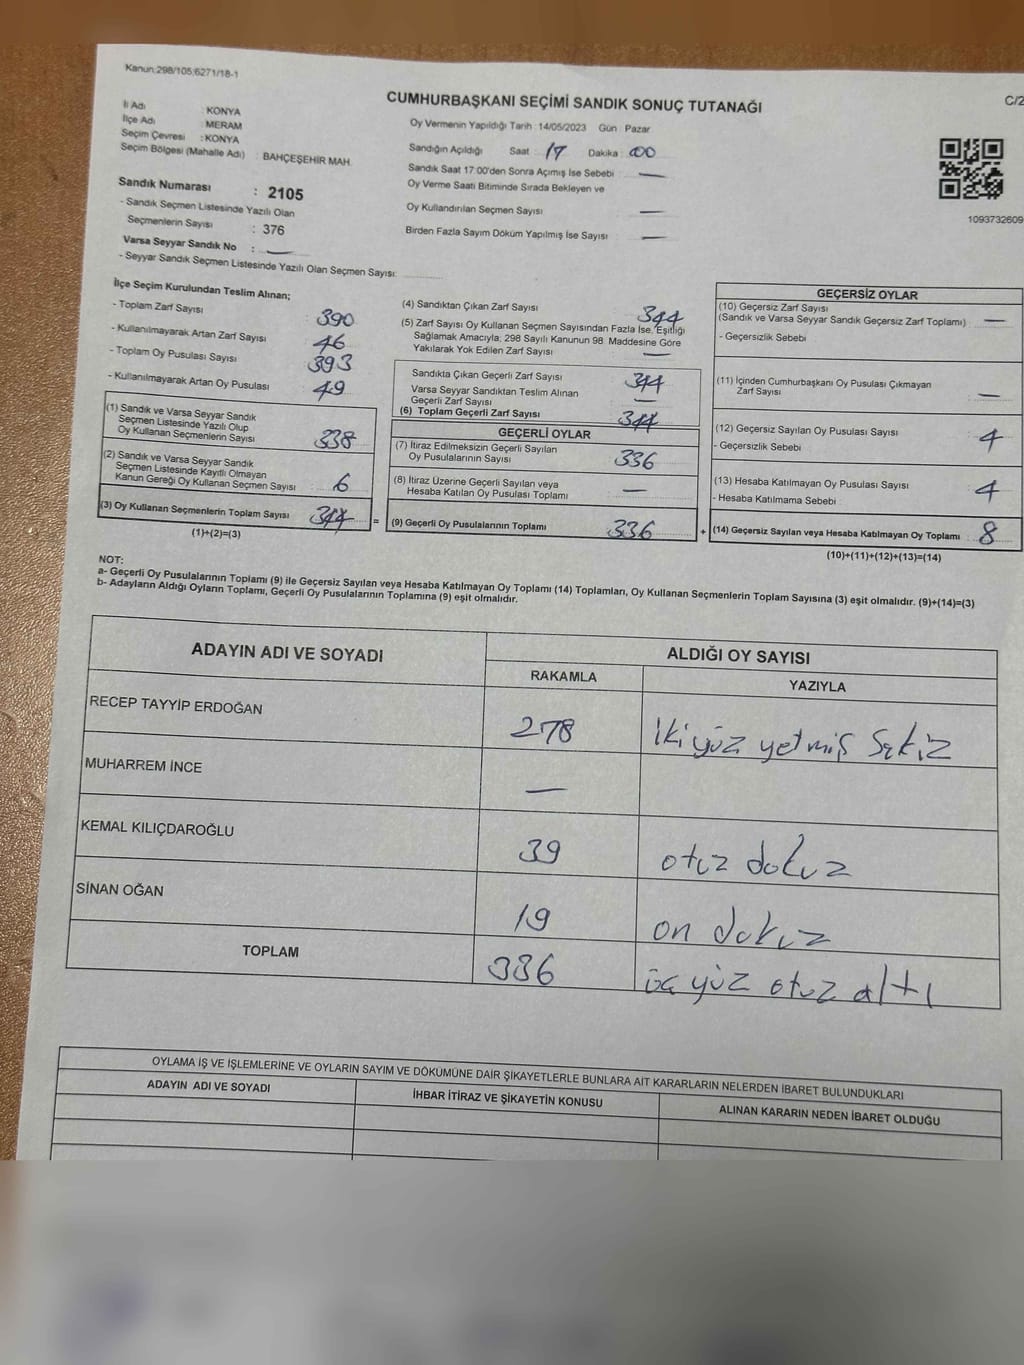 Kanun:298/105;6271/18-1
CUMHURBAŞKANI SEÇİMİ SANDIK SONUÇ TUTANAĞI
C/2
İl Adı : KONYA
İlçe Adı : MERAM
Seçim Çevresi : KONYA
Seçim Bölgesi (Mahalle Adı) : BAHÇEŞEHİR MAH.
Sandık Numarası : 2105
- Sandık Seçmen Listesinde Yazılı Olan
Seçmenlerin Sayısı : 376
Varsa Seyyar Sandık No : —
- Seyyar Sandık Seçmen Listesinde Yazılı Olan Seçmen Sayısı:
Oy Vermenin Yapıldığı Tarih : 14/05/2023 Gün : Pazar
Sandığın Açıldığı Saat : 17 Dakika : 00
Sandık Saat 17:00'den Sonra Açımış İse Sebebi : —
Oy Verme Saati Bitiminde Sırada Bekleyen ve
Oy Kullandırılan Seçmen Sayısı : —
Birden Fazla Sayım Döküm Yapılmış İse Sayısı : —
1093732609
İlçe Seçim Kurulundan Teslim Alınan;
- Toplam Zarf Sayısı : 390
- Kullanılmayarak Artan Zarf Sayısı : 46
- Toplam Oy Pusulası Sayısı : 393
- Kullanılmayarak Artan Oy Pusulası : 49
(1) Sandık ve Varsa Seyyar Sandık
Seçmen Listesinde Yazılı Olup
Oy Kullanan Seçmenlerin Sayısı : 338
(2) Sandık ve Varsa Seyyar Sandık
Seçmen Listesinde Kayıtlı Olmayan
Kanun Gereği Oy Kullanan Seçmen Sayısı : 6
(3) Oy Kullanan Seçmenlerin Toplam Sayısı : 344
(1)+(2)=(3)
(4) Sandıktan Çıkan Zarf Sayısı : 344
(5) Zarf Sayısı Oy Kullanan Seçmen Sayısından Fazla İse, Eşitliği
Sağlamak Amacıyla; 298 Sayılı Kanunun 98. Maddesine Göre
Yakılarak Yok Edilen Zarf Sayısı : —
Sandıkta Çıkan Geçerli Zarf Sayısı : 344
Varsa Seyyar Sandıktan Teslim Alınan
Geçerli Zarf Sayısı : —
(6) Toplam Geçerli Zarf Sayısı : 344
GEÇERLİ OYLAR
(7) İtiraz Edilmeksizin Geçerli Sayılan
Oy Pusulalarının Sayısı : 336
(8) İtiraz Üzerine Geçerli Sayılan veya
Hesaba Katılan Oy Pusulası Toplamı : —
= (9) Geçerli Oy Pusulalarının Toplamı : 336
GEÇERSİZ OYLAR
(10) Geçersiz Zarf Sayısı
(Sandık ve Varsa Seyyar Sandık Geçersiz Zarf Toplamı) : —
- Geçersizlik Sebebi
(11) İçinden Cumhurbaşkanı Oy Pusulası Çıkmayan
Zarf Sayısı : —
(12) Geçersiz Sayılan Oy Pusulası Sayısı : 4
- Geçersizlik Sebebi
(13) Hesaba Katılmayan Oy Pusulası Sayısı : 4
- Hesaba Katılmama Sebebi
+ (14) Geçersiz Sayılan veya Hesaba Katılmayan Oy Toplamı : 8
(10)+(11)+(12)+(13)=(14)
NOT:
a- Geçerli Oy Pusulalarının Toplamı (9) ile Geçersiz Sayılan veya Hesaba Katılmayan Oy Toplamı (14) Toplamları, Oy Kullanan Seçmenlerin Toplam Sayısına (3) eşit olmalıdır. (9)+(14)=(3)
b- Adayların Aldığı Oyların Toplamı, Geçerli Oy Pusulalarının Toplamına (9) eşit olmalıdır.
ADAYIN ADI VE SOYADI ALDIĞI OY SAYISI
RAKAMLA YAZIYLA
RECEP TAYYİP ERDOĞAN 278 İkiyüz yetmiş sekiz
MUHARREM İNCE —
KEMAL KILIÇDAROĞLU 39 otuz dokuz
SİNAN OĞAN 19 on dokuz
TOPLAM 336 üç yüz otuz altı
OYLAMA İŞ VE İŞLEMLERİNE VE OYLARIN SAYIM VE DÖKÜMÜNE DAİR ŞİKAYETLERLE BUNLARA AİT KARARLARIN NELERDEN İBARET BULUNDUKLARI
ADAYIN ADI VE SOYADI İHBAR İTİRAZ VE ŞİKAYETİN KONUSU ALINAN KARARIN NEDEN İBARET OLDUĞU